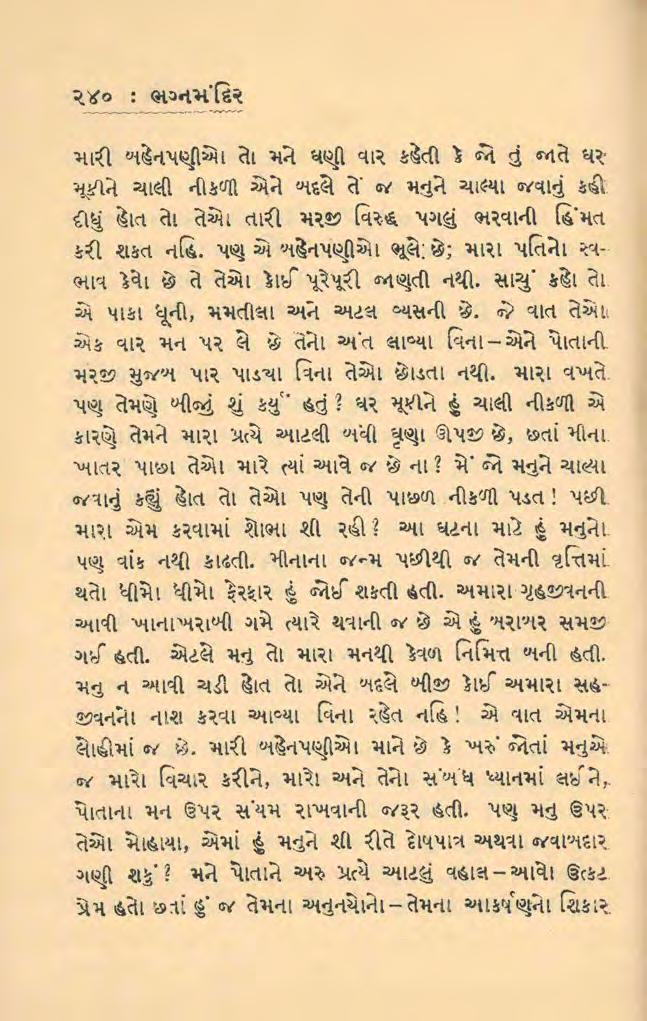 ૨૪૦ : ભગ્નમંદિર
મારી બહેનપણીઓ તો મને ઘણી વાર કહેતી કે જો તું જાતે ઘર
મૂકીને ચાલી નીકળી એને બદલે તેં જ મનુને ચાલ્યા જવાનું કહી
દીધું હોત તો તેઓ તારી મરજી વિરુદ્ધ પગલું ભરવાની હિંમત
કરી શકત નહિ. પણ એ બહેનપણીઓ ભૂલે છે; મારા પતિનો સ્વ-
ભાવ કેવો છે તે તેઓ કોઈ પૂરેપૂરી જાણતી નથી. સાચું કહો તો
એ પાકા ધૂની, મમતીલા અને અટલ વ્યસની છે. જે વાત તેઓ
એક વાર મન પર લે છે તેનો અંત લાવ્યા વિના–એને પોતાની
મરજી મુજબ પાર પાડ્યા વિના તેઓ છોડતા નથી. મારા વખતે
પણ તેમણે બીજું શું કર્યું હતું? ઘર મૂકીને હું ચાલી નીકળી એ
કારણે તેમને મારા પ્રત્યે આટલી બધી ઘૃણા ઊપજી છે, છતાં મીના
ખાતર પાછા તેઓ મારે ત્યાં આવે જ છે ના? મેં જો મનુને ચાલ્યા
જવાનું કહ્યું હોત તો તેઓ પણ તેની પાછળ નીકળી પડત! પછી
મારા એમ કરવામાં શોભા શી રહી? આ ઘટના માટે હું મનુનો
પણ વાંક નથી કાઢતી. મીનાના જન્મ પછીથી જ તેમની વૃત્તિમાં
થતો ધીમો ધીમો ફેરફાર હું જોઈ શકતી હતી. અમારા ગૃહજીવનની
આવી ખાનાખરાબી ગમે ત્યારે થવાની જ છે એ હું બરાબર સમજી
ગઈ હતી. એટલે મનુ તો મારા મનથી કેવળ નિમિત્ત બની હતી.
મનુ ન આવી ચડી હોત તો એને બદલે બીજી કોઈ અમારા સહ-
જીવનનો નાશ કરવા આવ્યા વિના રહેત નહિ! એ વાત એમના
લોહીમાં જ છે. મારી બહેનપણીઓ માને છે કે ખરું જોતાં મનુએ
જ મારો વિચાર કરીને, મારો અને તેનો સંબંધ ધ્યાનમાં લઈને,
પોતાના મન ઉપર સંયમ રાખવાની જરૂર હતી. પણ મનુ ઉપર
તેઓ મોહાયા, એમાં હું મનુને શી રીતે દોષપાત્ર અથવા જવાબદાર
ગણી શકું? મને પોતાને અરુ પ્રત્યે આટલું વહાલ–આવો ઉત્કટ
પ્રેમ હતો છતાં હું જ તેમના અનુનયોનો–તેમના આકર્ષણનો શિકાર